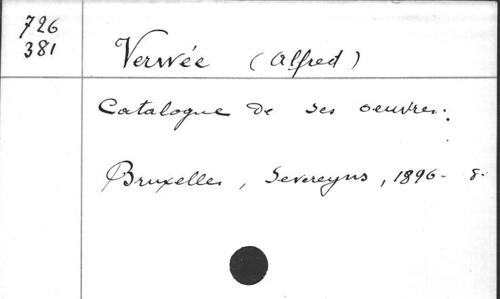 726
381
Verwée (Alfred)
Catalogue de ses oeuvres.
Bruxelles, Severeyns, 1896 - 8.